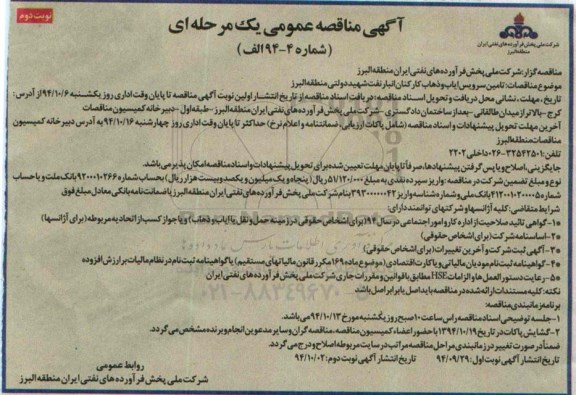 نوبت دوم
آگهی مناقصه عمومی یک مرحله ای
(شماره ۴-۹۴ الف)
شرکت ملی پخش فرآورده های نفتی ایران
منطقه البرز
مناقصه گزار: شرکت ملی پخش فرآورده های نفتی ایران منطقه البرز
موضوع مناقصات: تامین سرویس ایاب و ذهاب کارکنان انبار نفت شهید دولتی منطقه البرز
تاریخ، مهلت، نشانی محل دریافت و تحویل اسناد مناقصه: دریافت اسناد مناقصه از تاریخ انتشار اولین نوبت آگهی مناقصه تا پایان وقت اداری روز یکشنبه ۹۴/۱۰/۶ از آدرس:
کرج - بالاتر از میدان طالقانی - بعد از ساختمان دادگستری - شرکت ملی پخش فرآورده های نفتی ایران منطقه البرز - طبقه اول - دبیرخانه کمیسیون مناقصات
آخرین مهلت تحویل پیشنهادات و اسناد مناقصه (شامل پاکات ارزیابی، ضمانتنامه و اعلام نرخ) حداکثر تا پایان وقت اداری روز چهارشنبه ۹۴/۱۰/۱۶ به آدرس دبیرخانه کمیسیون
مناقصات منطقه البرز
تلفن: ۳۲۵۴۲۵۰۱-۰۲۶ داخلی ۲۲۰۲
جایگزینی، اصلاح و یا پس گرفتن پیشنهادها، صرفاً تا پایان مهلت تعیین شده برای تحویل پیشنهادات و اسناد مناقصه امکان پذیر می باشد.
نوع و مبلغ تضمین شرکت در مناقصه: واریز سپرده نقدی به مبلغ ۵۱/۱۲۰/۰۰۰ ریال (پنجاه و یک میلیون و یکصد و بیست هزار ریال) بحساب شماره ۹۲۰۰۰۱۰۲۶۶ بانک ملت و یا حساب
شماره ۴۱۲۰۰۱۰۲۰۰۰۰۵ بانک ملی و شماره شناسه واریز ۳۹۳۰۰۰۰۰۰۴۲ بنام شرکت ملی پخش فرآورده های نفتی ایران منطقه البرز یا ضمانت نامه بانکی معادل مبلغ فوق
شرایط متقاضی: کلیه آژانسها و شرکتهای توانمند دارای:
۱- گواهی تائید صلاحیت از اداره کار و امور اجتماعی در سال ۹۴ (برای اشخاص حقوقی در زمینه حمل و نقل یا ایاب و ذهاب) و یا جواز کسب از اتحادیه مربوطه (برای آژانسها)
۲- اساسنامه شرکت (برای اشخاص حقوقی)
۳- آگهی ثبت شرکت و آخرین تغییرات (برای اشخاص حقوقی)
۴- گواهینامه ثبت نام مودیان مالیاتی و یا کارت اقتصادی (موضوع ماده ۱۶۹ مکرر قانون مالیاتهای مستقیم) یا گواهینامه ثبت نام در نظام مالیات بر ارزش افزوده
۵- رعایت دستورالعمل ها و الزامات HSE مطابق با قوانین و مقررات جاری شرکت ملی پخش فرآورده های نفتی ایران
نکته: کلیه مستندات ارائه شده در مناقصه باید اصل یا برابر اصل باشد
برنامه زمانبندی مناقصه:
۱- جلسه توضیحی اسناد مناقصه راس ساعت ۱۰ صبح روز یکشنبه مورخ ۹۴/۱۰/۱۳ می باشد.
۲- گشایش پاکات در تاریخ ۱۳۹۴/۱۰/۱۹ با حضور اعضاء کمیسیون مناقصه، مناقصه گران و سایر مدعوین انجام و برنده مشخص می گردد.
ضمناً در صورت تغییر در زمانبندی مراحل مناقصه مراتب در سایت مربوطه اصلاح و درج می گردد.
تاریخ انتشار آگهی نوبت اول: ۹۴/۰۹/۲۹ تاریخ انتشار آگهی نوبت دوم: ۹۴/۱۰/۰۲
روابط عمومی
شرکت ملی پخش فرآورده های نفتی ایران منطقه البرز
۰۲۱-۸۸۳۴۹۶۷۰-۵